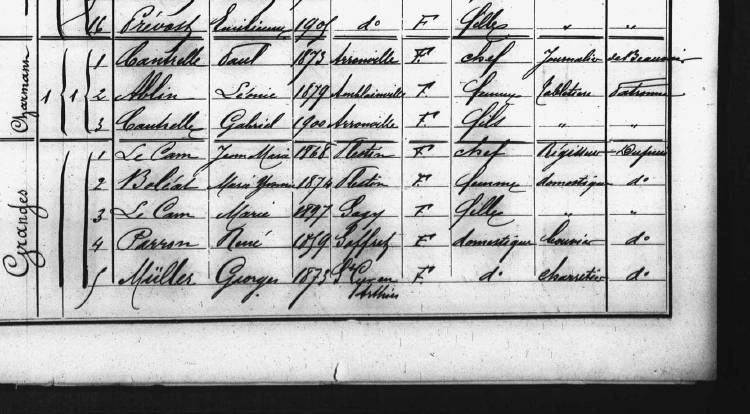 16 Prévost Emilienne 1905 do F fille " "
Charmann 1 1 1 Cantrelle Paul 1873 Arronville F chef Journalier de Beauvoir
2 Ablin Léonie 1879 Amblainville F femme Tabletière Patronne
3 Cantrelle Gabriel 1900 Arronville F fils " "
Granges 1 Le Cam Jean Marie 1868 Plestin F chef Régisseur
2 Boléat Marie Yvonne 1874 Plestin F femme domestique do
3 Le Cam Marie 1897 Sagy F fille " "
4 Parron René 1859 F domestique bouvier do
5 Müller Georges 1873 St Cyr en F do charretier do
Arthies